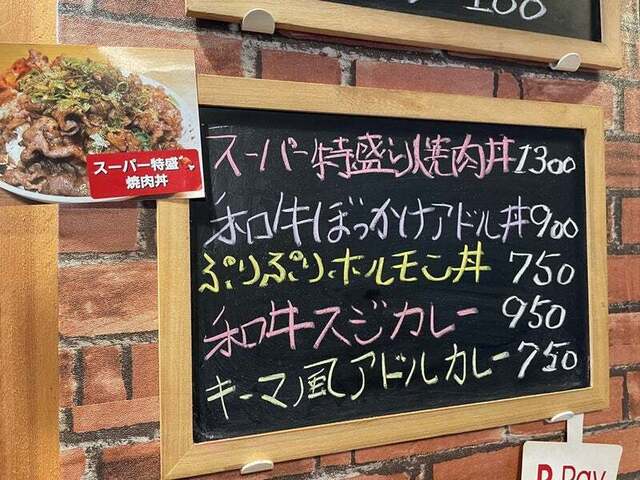 100
スーパー特盛
焼肉丼
スーパー特盛り焼肉丼 1300
和牛ぼっかけアドル丼 900
ぷりぷりホルモン丼 750
和牛スジカレー 950
キーマ風アドルカレー 750
R Pay